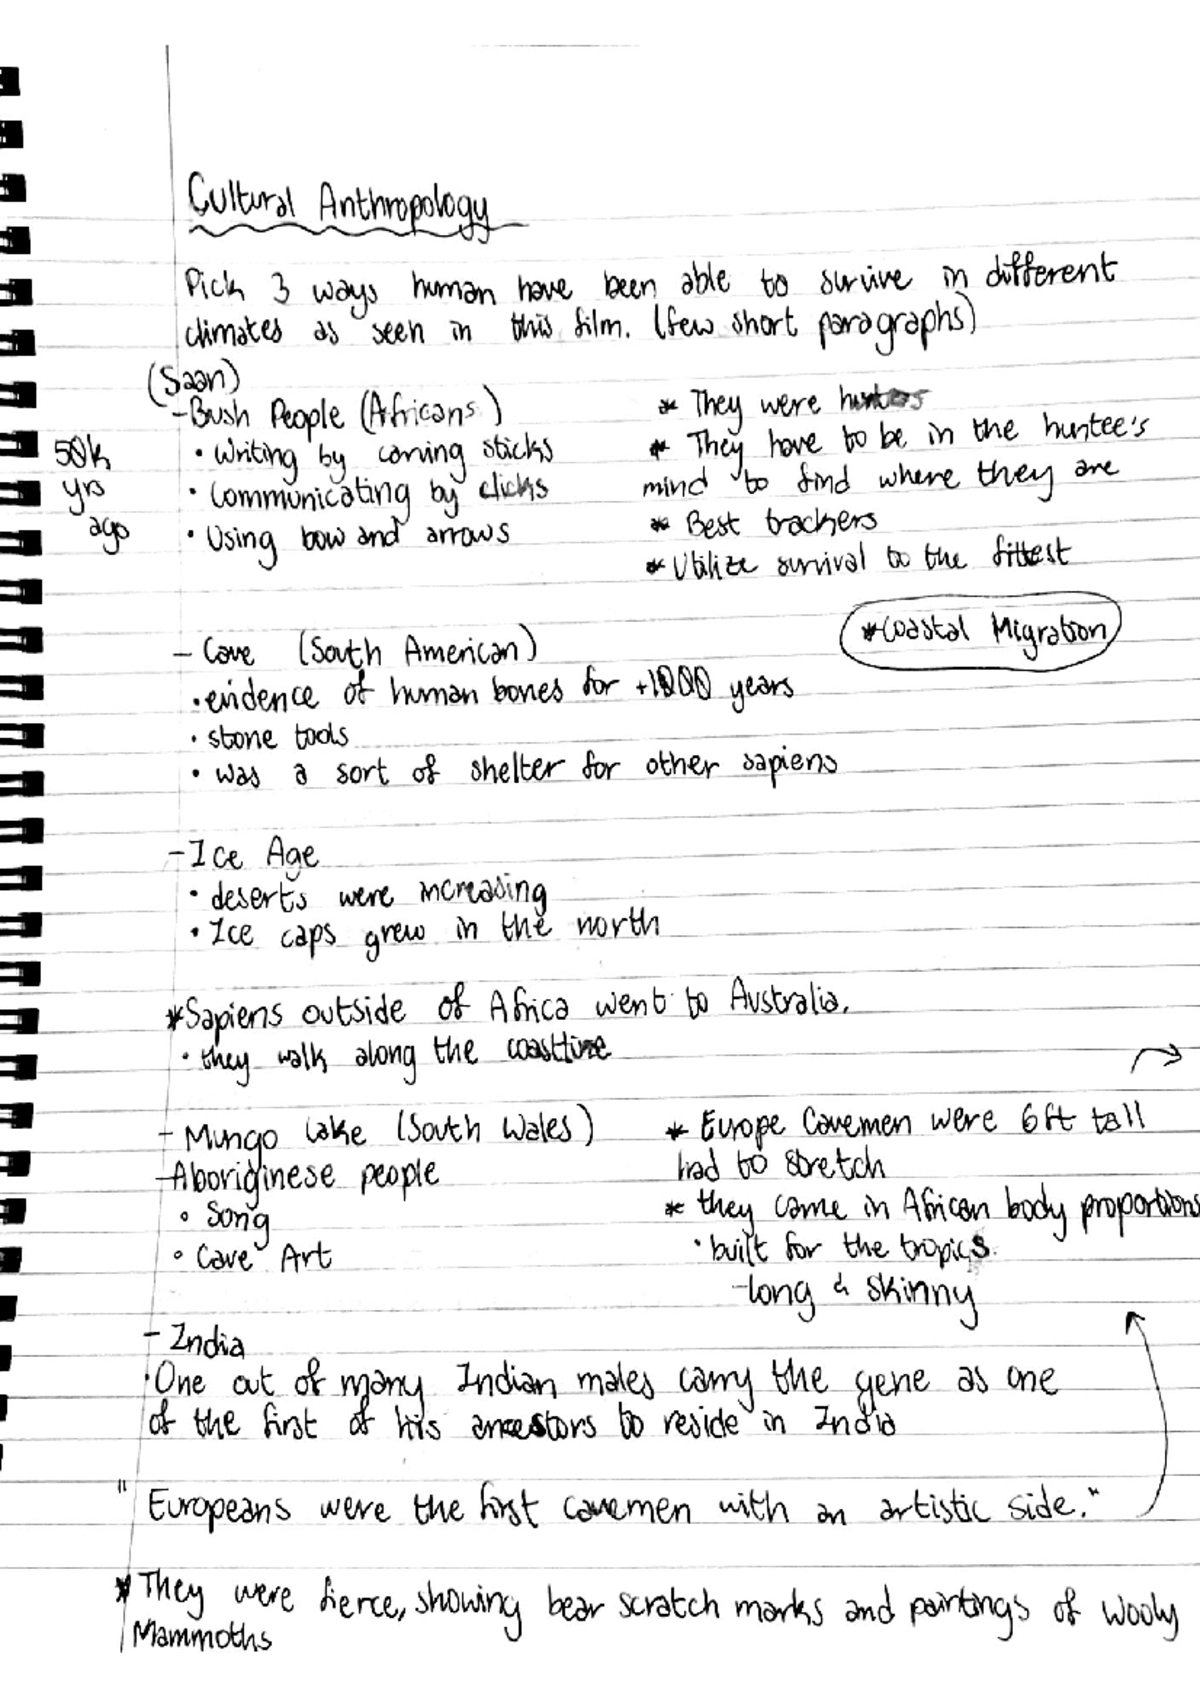 Cultural Anthropology
Pick 3 ways human have been able to survive in different
climates as seen in this film. (few short paragraphs)
(Saan)
- Bush People (Africans)
50k yrs ago
• Writing by carving sticks
• Communicating by clicks
• Using bow and arrows
* They were hunters
* They have to be in the huntee's
mind to find where they are
* Best trackers
* Utilize survival to the fittest
*Coastal Migration
- Cave (South American)
• evidence of human bones for +1000 years
• stone tools
• was a sort of shelter for other sapiens
- Ice Age
• deserts were increasing
• Ice caps grew in the north
*Sapiens outside of Africa went to Australia.
• they walk along the coastline
- Mungo Lake (South Wales)
- Aboriginese people
◦ Song
◦ Cave Art
* Europe Cavemen were 6ft tall
had to stretch
* they came in African body proportions
• built for the tropics.
- long & skinny
- India
• One out of many Indian males carry the gene as one
of the first of his ancestors to reside in India
" Europeans were the first cavemen with an artistic side."
* They were fierce, showing bear scratch marks and paintings of wooly
Mammoths